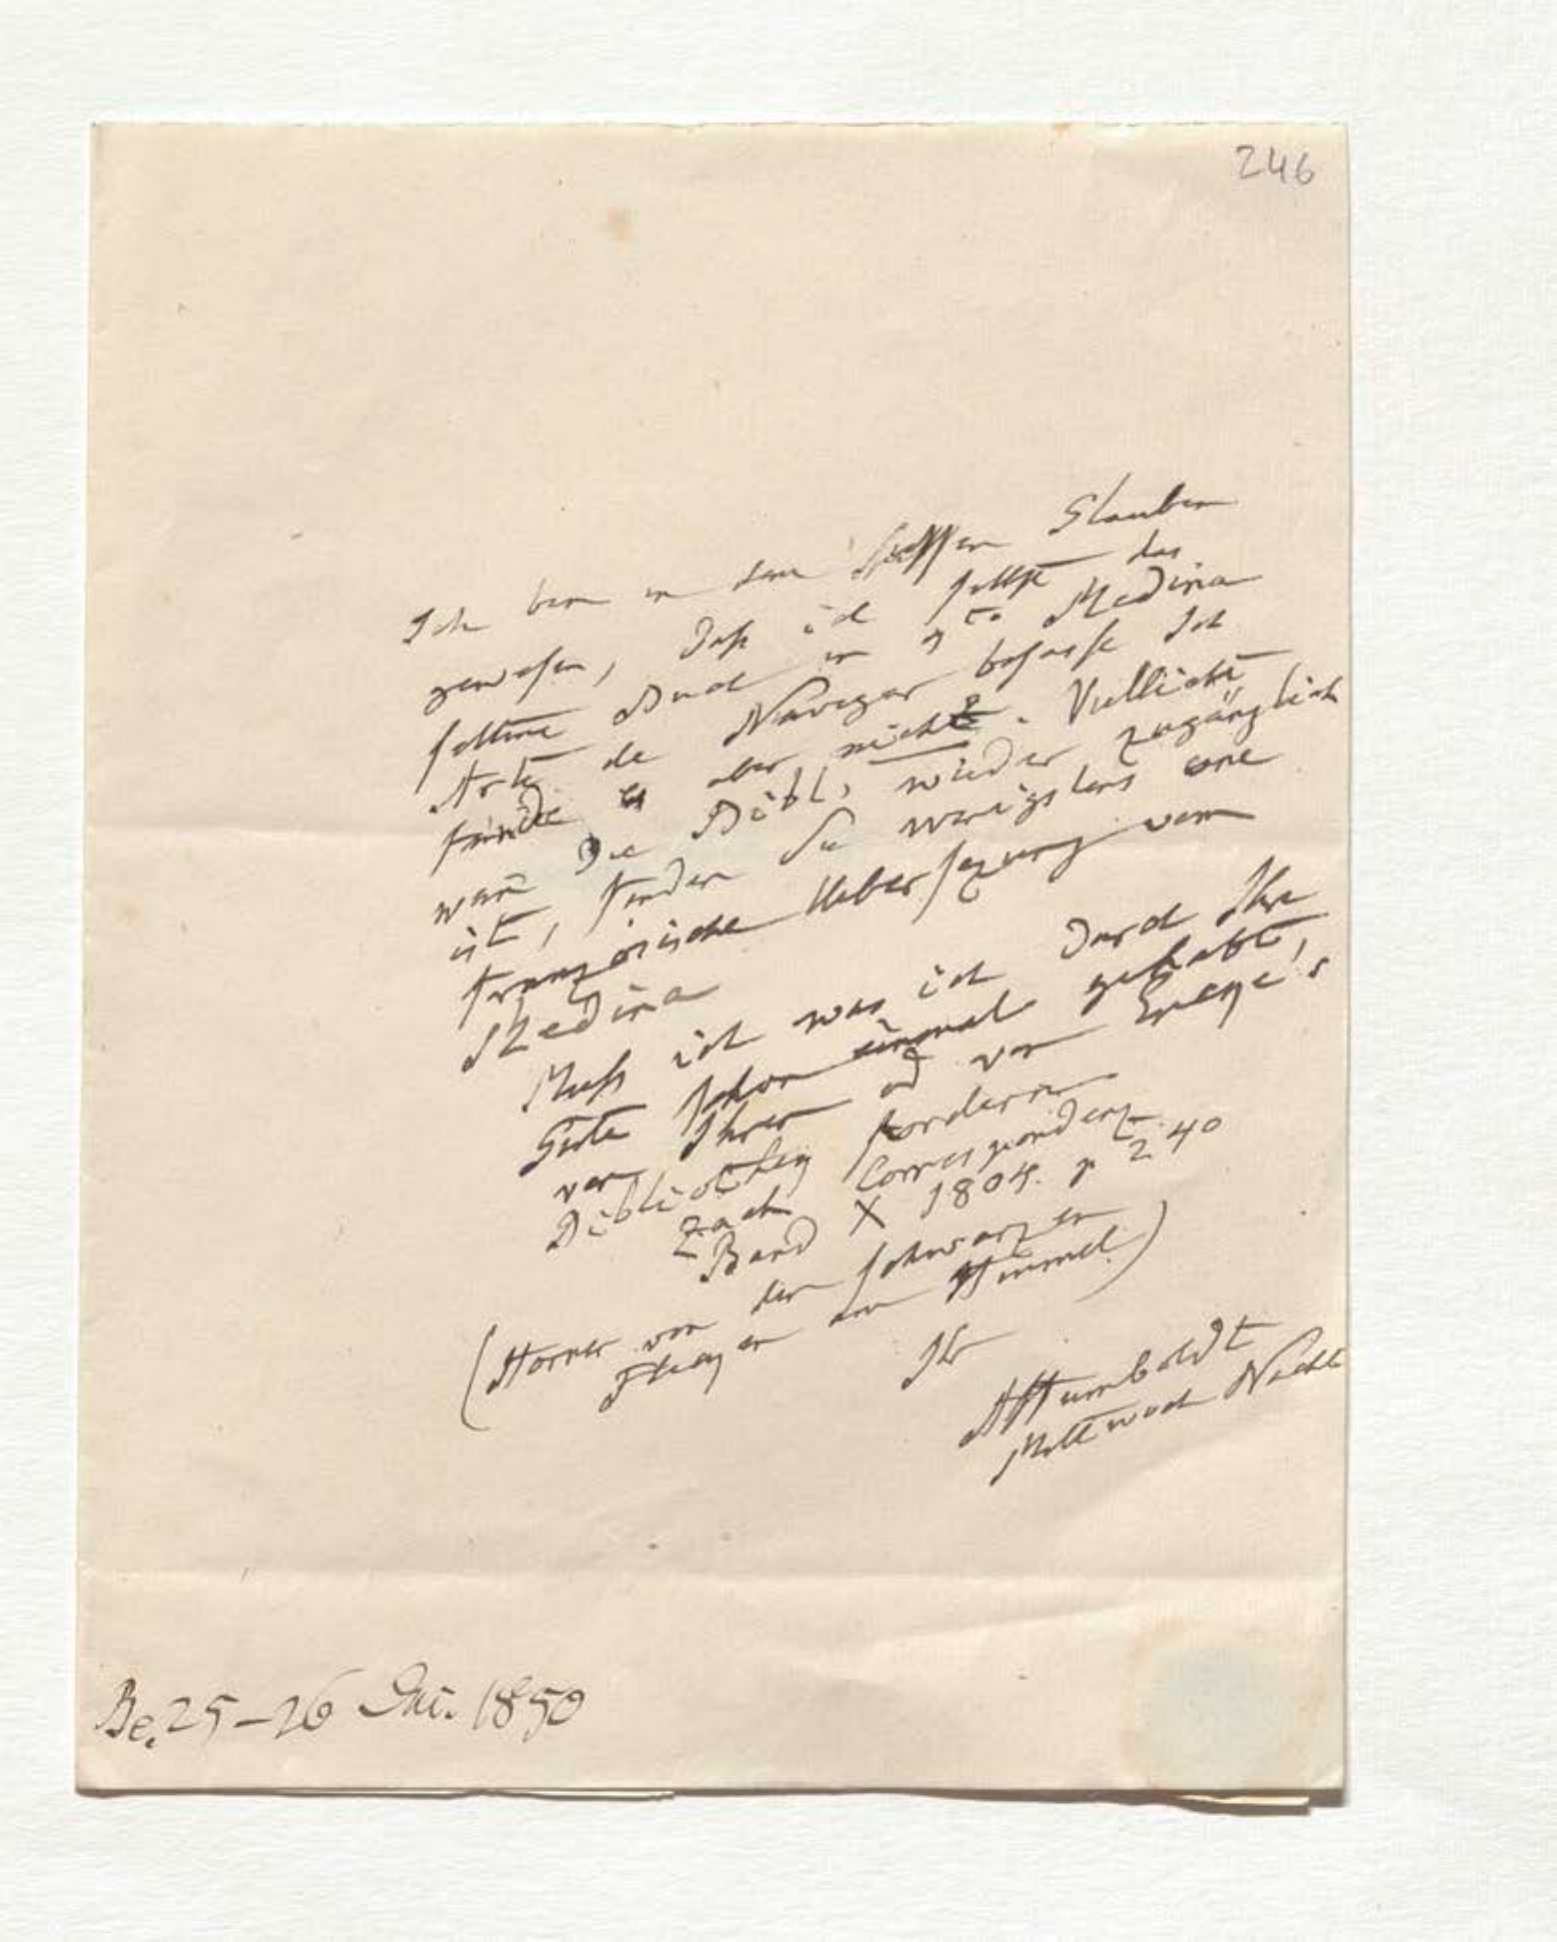 246
Ich bin in dem tiefsten Glauben
gewesen, daß ich selbst das
seltene Buch in 4to Medina
Arte de Navegar besasse Ich
finde es aber nicht. Vielleicht
wañ die Bibl. wieder zugänglich
ist, finden Sie wenigstens eine
französische Uebersezung vom
Medina
Muß ich was ich durch Ihre
Güte schon einmal gehabt,
von Ihrer od von Encke's
Bibliothek fordern
Zach Correspondenz
Band X 1804. p 240
(Horner von den schwarzen
Flecken am Himmel.)
Ihr
AHumboldt
Mittwoch Nacht
Be. 25–26 Dec. 1850